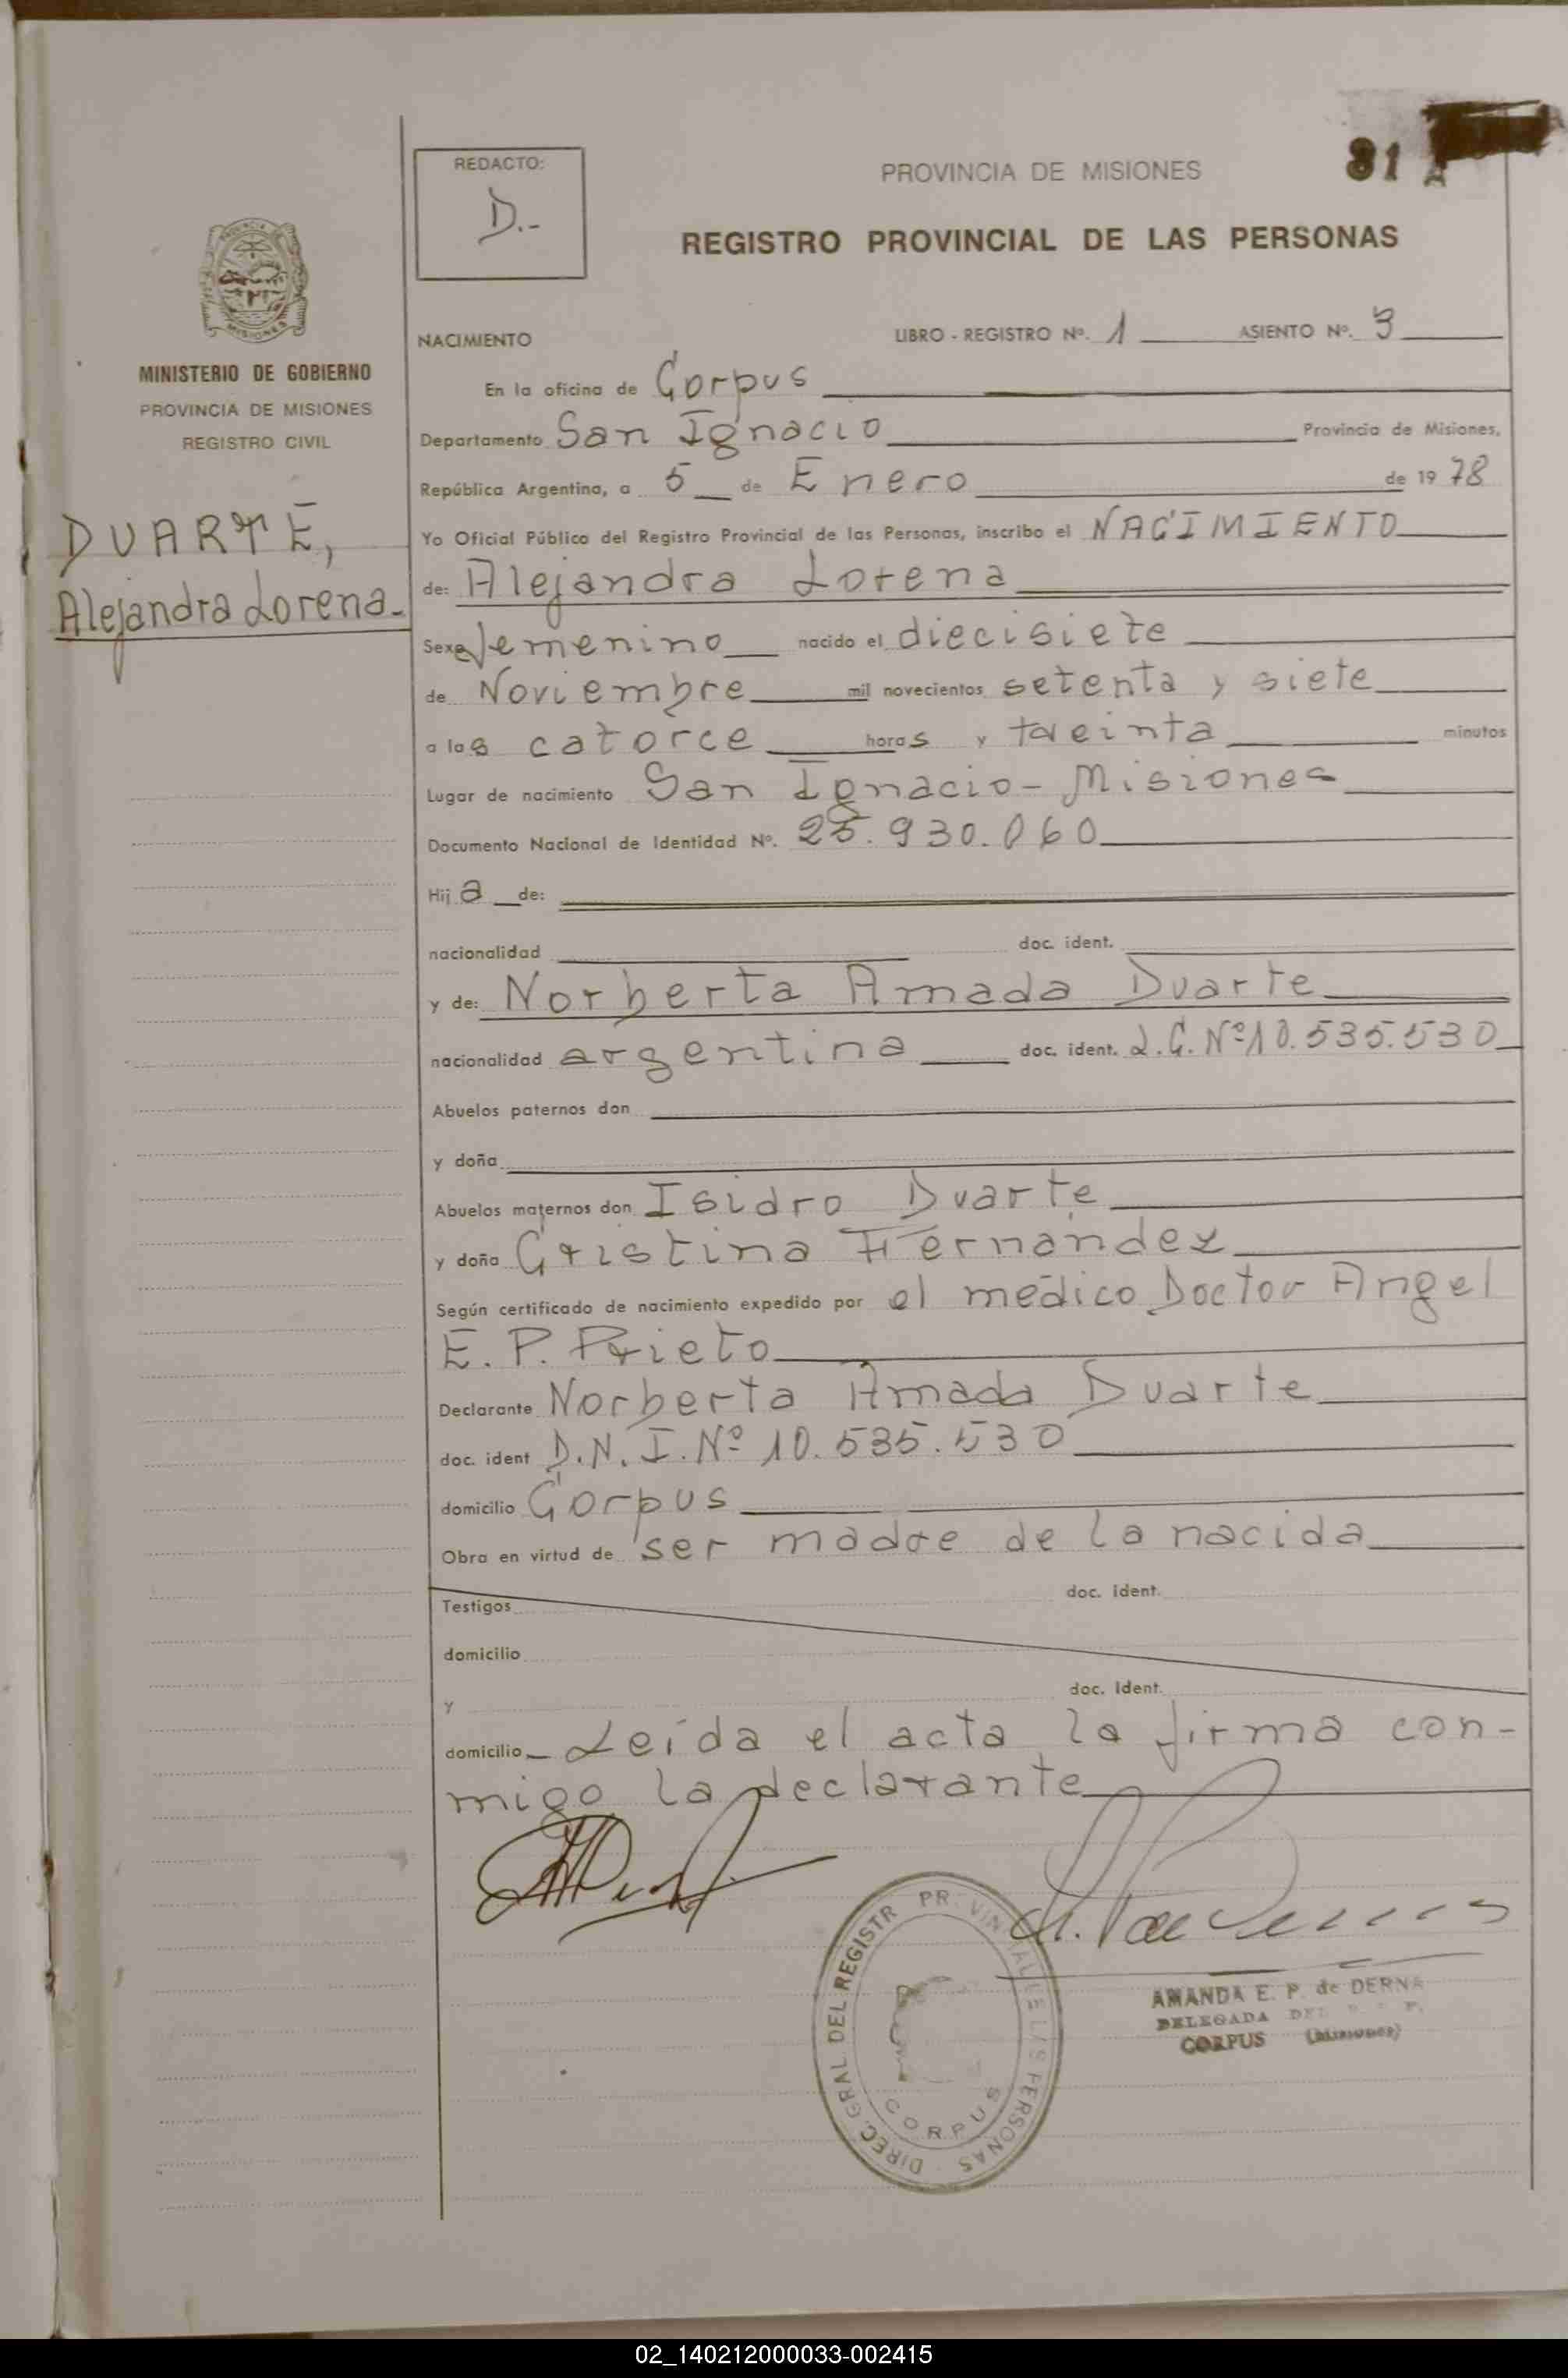 81
REDACTO:
D.-
PROVINCIA DE MISIONES
REGISTRO PROVINCIAL DE LAS PERSONAS
MINISTERIO DE GOBIERNO
PROVINCIA DE MISIONES
REGISTRO CIVIL
DUARTE,
Alejandra Lorena.-
NACIMIENTO LIBRO - REGISTRO Nº. 1 ASIENTO Nº. 3
En la oficina de Corpus
Departamento San Ignacio Provincia de Misiones,
República Argentina, a 5 de Enero de 19 78
Yo Oficial Público del Registro Provincial de las Personas, inscribo el NACIMIENTO
de: Alejandra Lorena
Sexo femenino nacido el diecisiete
de Noviembre mil novecientos setenta y siete
a las catorce horas y treinta minutos
Lugar de nacimiento San Ignacio - Misiones
Documento Nacional de Identidad Nº. 25.930.060
Hija de:
nacionalidad doc. ident.
y de: Norberta Amada Duarte
nacionalidad argentina doc. ident. L.C. Nº 10.535.530
Abuelos paternos don
y doña
Abuelos maternos don Isidro Duarte
y doña Cristina Fernández
Según certificado de nacimiento expedido por el médico Doctor Angel
E. P. Prieto
Declarante Norberta Amada Duarte
doc. ident D.N.I. Nº 10.535.530
domicilio Corpus
Obra en virtud de ser madre de la nacida
Testigos doc. ident.
domicilio
y doc. ident.
domicilio - Leída el acta la firma con-
migo la declarante
DIREC. GRAL. DEL REGISTR PR VIN AL DE LAS PERSONAS
CORPUS
AMANDA E. P. de DERNA
DELEGADA
CORPUS (Misiones)
02_140212000033-002415